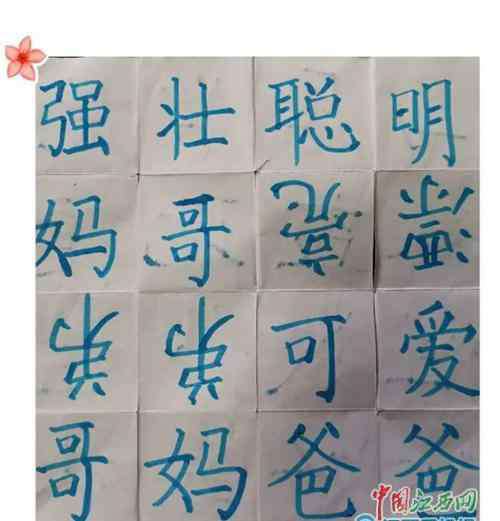 强壮聪明
妈哥亮漂
弟弟可爱
哥妈爸爸
中国江西网